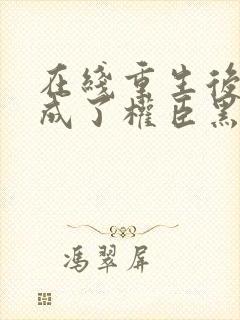 在线重生後
成了權臣黑
馮翠屏